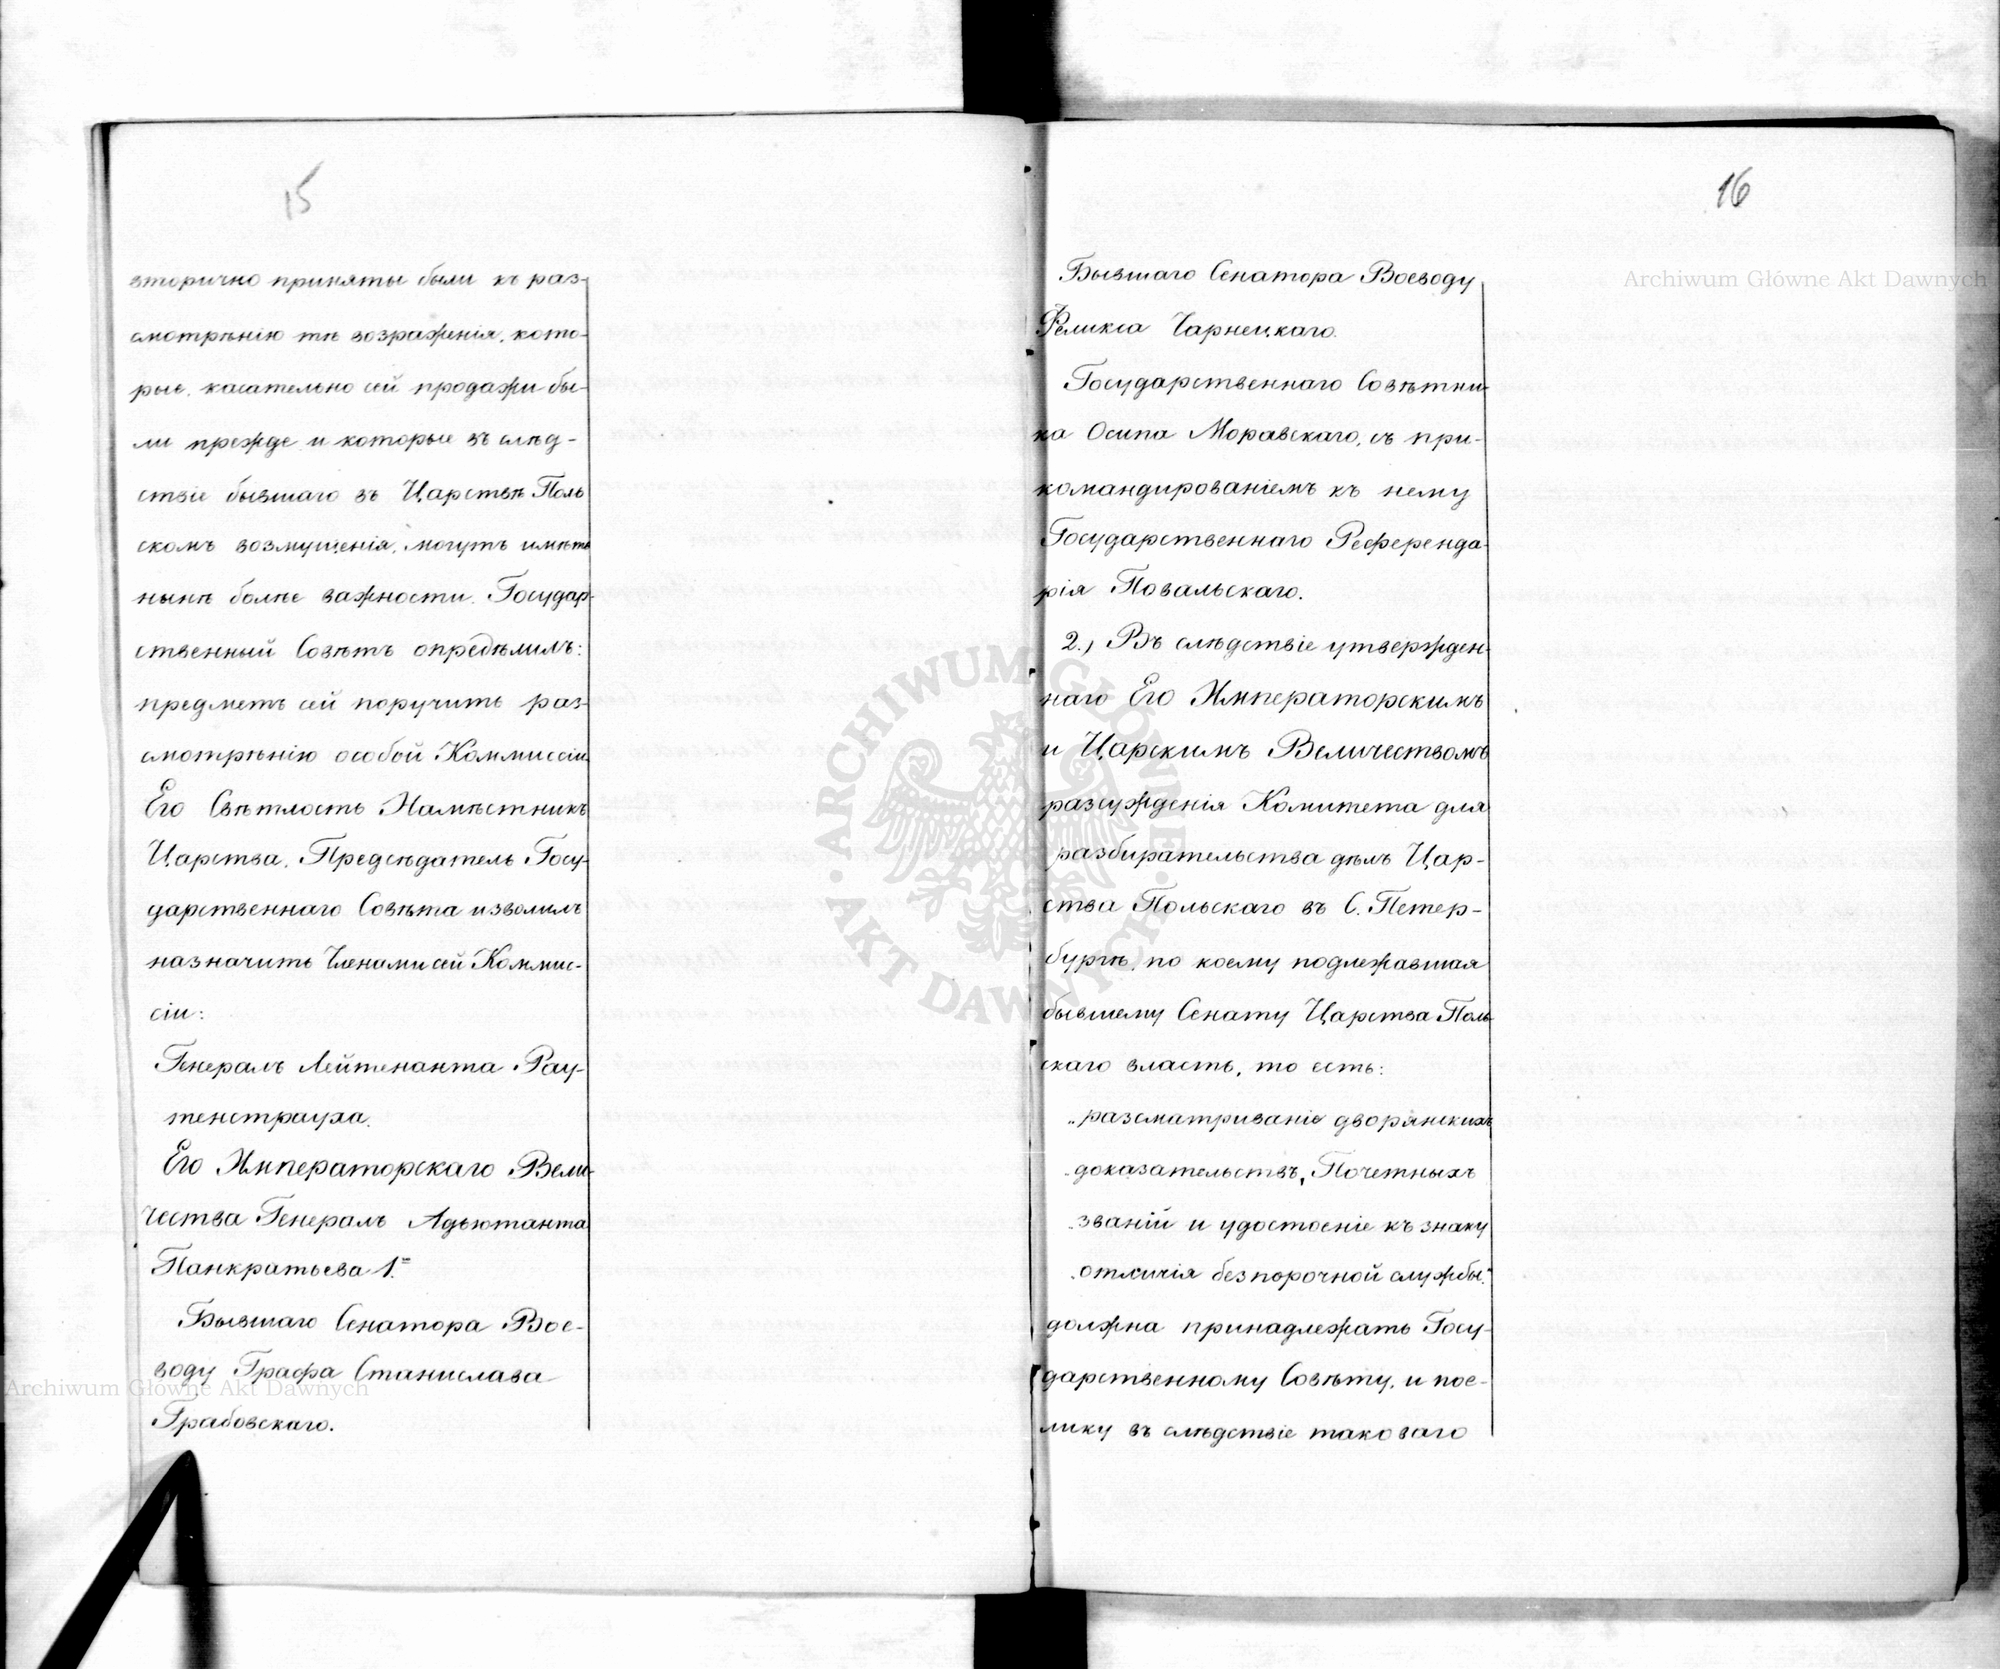 15
вторично приняты были къ раз-
смотрѣнію тѣ возраженія, кото-
рые, касательно сей продажи бы-
ли прежде и которые въ слѣд-
ствіе бывшаго въ Царствѣ Поль
скомъ возмущенія, могутъ имѣть
нынѣ болѣе важности. Государ-
ственный Совѣтъ опредѣлилъ:
предметъ сей поручить раз-
смотрѣнію особой Коммиссіи.
Его Свѣтлость Намѣстникъ
Царства, Предсѣдатель Госу-
дарственнаго Совѣта изволилъ
назначить Членами сей Коммис-
сіи:
Генералъ Лейтенанта Рау-
тенстрауха.
Его Императорскаго Вели-
чества Генералъ Адъютанта
Панкратьева 1.
Бывшаго Сенатора Вое-
воду Графа Станислава
Грабовскаго.
16
Бывшаго Сенатора Воеводу
Феликса Чарнецкаго.
Государственнаго Совѣтни-
ка Осипа Моравскаго, съ при-
командированіемъ къ нему
Государственнаго Референда-
рія Повальскаго.
2., Въ слѣдствіе утвержден-
наго Его Императорскимъ
и Царскимъ Величествомъ
разсужденія Комитета для
разбирательства дѣлъ Цар-
ства Польскаго въ С. Петер-
бургѣ, по коему подлежавшая
бывшему Сенату Царства Поль-
скаго власть, то есть:
„разсматриваніе дворянскихъ
„доказательствъ, Почетныхъ
„званій и удостоеніе къ знаку
„отличія безпорочной службы."
должна принадлежать Госу-
дарственному Совѣту, и пое-
лику въ слѣдствіе таковаго
Archiwum Główne Akt Dawnych
Archiwum Główne Akt Dawnych
ARCHIWUM GŁÓWNE · AKT DAWNYCH ·